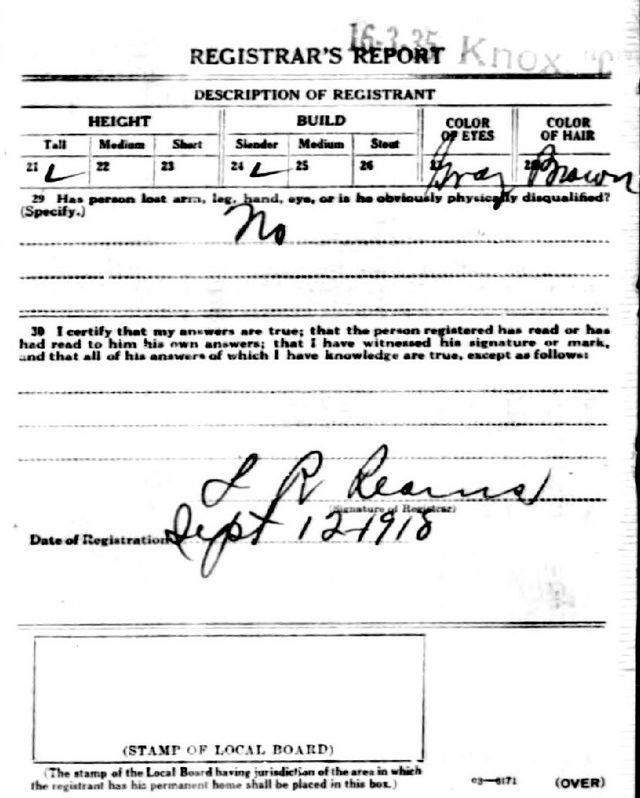 16-3-35 Knox
REGISTRAR'S REPORT
DESCRIPTION OF REGISTRANT
HEIGHT BUILD COLOR OF EYES COLOR OF HAIR
Tall Medium Short Slender Medium Stout
21 22 23 24 25 26 27 Gray 28 Brown
29 Has person lost arm, leg, hand, eye, or is he obviously physically disqualified?
(Specify.)
No
30 I certify that my answers are true; that the person registered has read or has
had read to him his own answers; that I have witnessed his signature or mark,
and that all of his answers of which I have knowledge are true, except as follows:
L R Reams
(Signature of Registrar)
Date of Registration Sept 12-1918
(STAMP OF LOCAL BOARD)
(The stamp of the Local Board having jurisdiction of the area in which
the registrant has his permanent home shall be placed in this box.)
03—6171 (OVER)